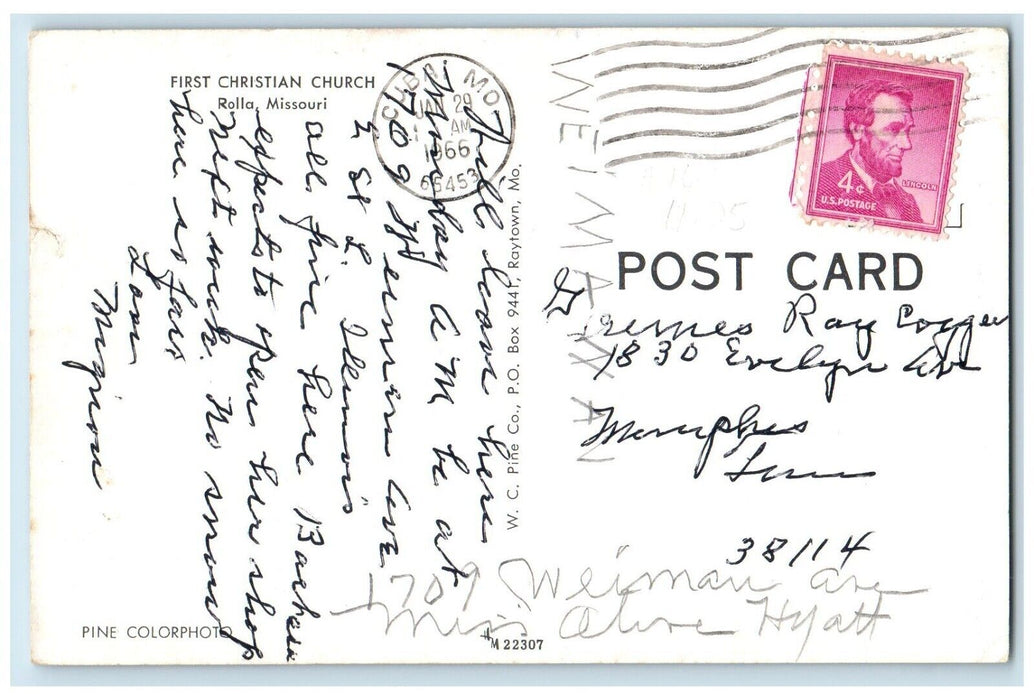 FIRST CHRISTIAN CHURCH
Rolla, Missouri
Will leave here
Monday A M be at
1709 Weiman Ave
E St L. Illinois
all fine here Barbara
expects to open her shop
Next week. No snow
here so far
Love
Mignon
PINE COLORPHOTO
W. C. Pine Co., P.O. Box 9441, Raytown, Mo.
M 22307
CUBA, MO.
JAN 29
AM
1966
65453
WEIMANN
4¢
LINCOLN
U.S. POSTAGE
POST CARD
Ray
1830 Evelyn Ave
Memphis
Tenn
38114
1709 Weiman Ave
Miss Olive Hyatt